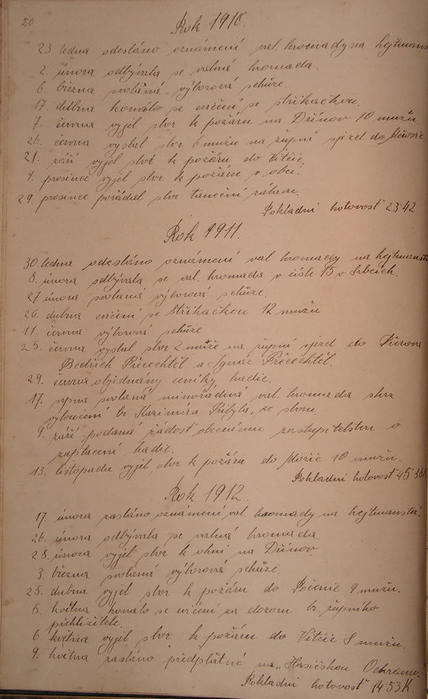 20
Rok 1910.
23 ledna odesláno oznámení val. hromady na hejtmanst
2. února odbývala se valná hromada.
6 března svolána výborová schůze.
17. dubna konalo se cvičení se stříkačkou.
7 června vyjel sbor k požáru na Dřínov 10 mužů
26. června vyslal sbor 6 mužů na župní sjezd do
21. září vyjel sbor k požáru do Věžic
9. prosince vyjel sbor k požáru v obci.
29. prosince pořádal sbor taneční zábavu.
Pokladní hotovost 23·42
Rok 1911.
30. ledna odesláno oznámení val hromady na hejtmanstv
8. února odbývala se val. hromada v čísle 15 v
27 února svolaná výborová schůze.
26. dubna cvičení se stříkačkou 12 mužů
11. června výborová schůze
25. června vyslal sbor 2 muže na župní sjezd do
Bedřich Přecechtěl a Ignác Přecechtěl.
29. června objednány ceníky, hadic.
17. srpna svolaná mimořádná val. hromada skrz
vyloučení br. se sboru.
9. září podaná žádost obecnímu zastupitelstvu o
zaplacení hadic.
13. listopadu vyjel sbor k požáru do 10 mužů.
Pokladní hotovost 45·
Rok 1912.
17. února zasláno oznámení val. hromady na hejtmanstv
26. února odbývala se valná hromada.
28. února vyjel sbor k ohni na Dřínov
3. března svolaná výborová schůze
25. dubna vyjel sbor k požáru do 9 mužů.
6 května konalo se cvičení za dozoru br. župního
6 května vyjel sbor k požáru do Věžic 8 mužů.
9. května zasláno předplatné na „Hasičskou Ochranu“
Pokladní hotovost 14·53K